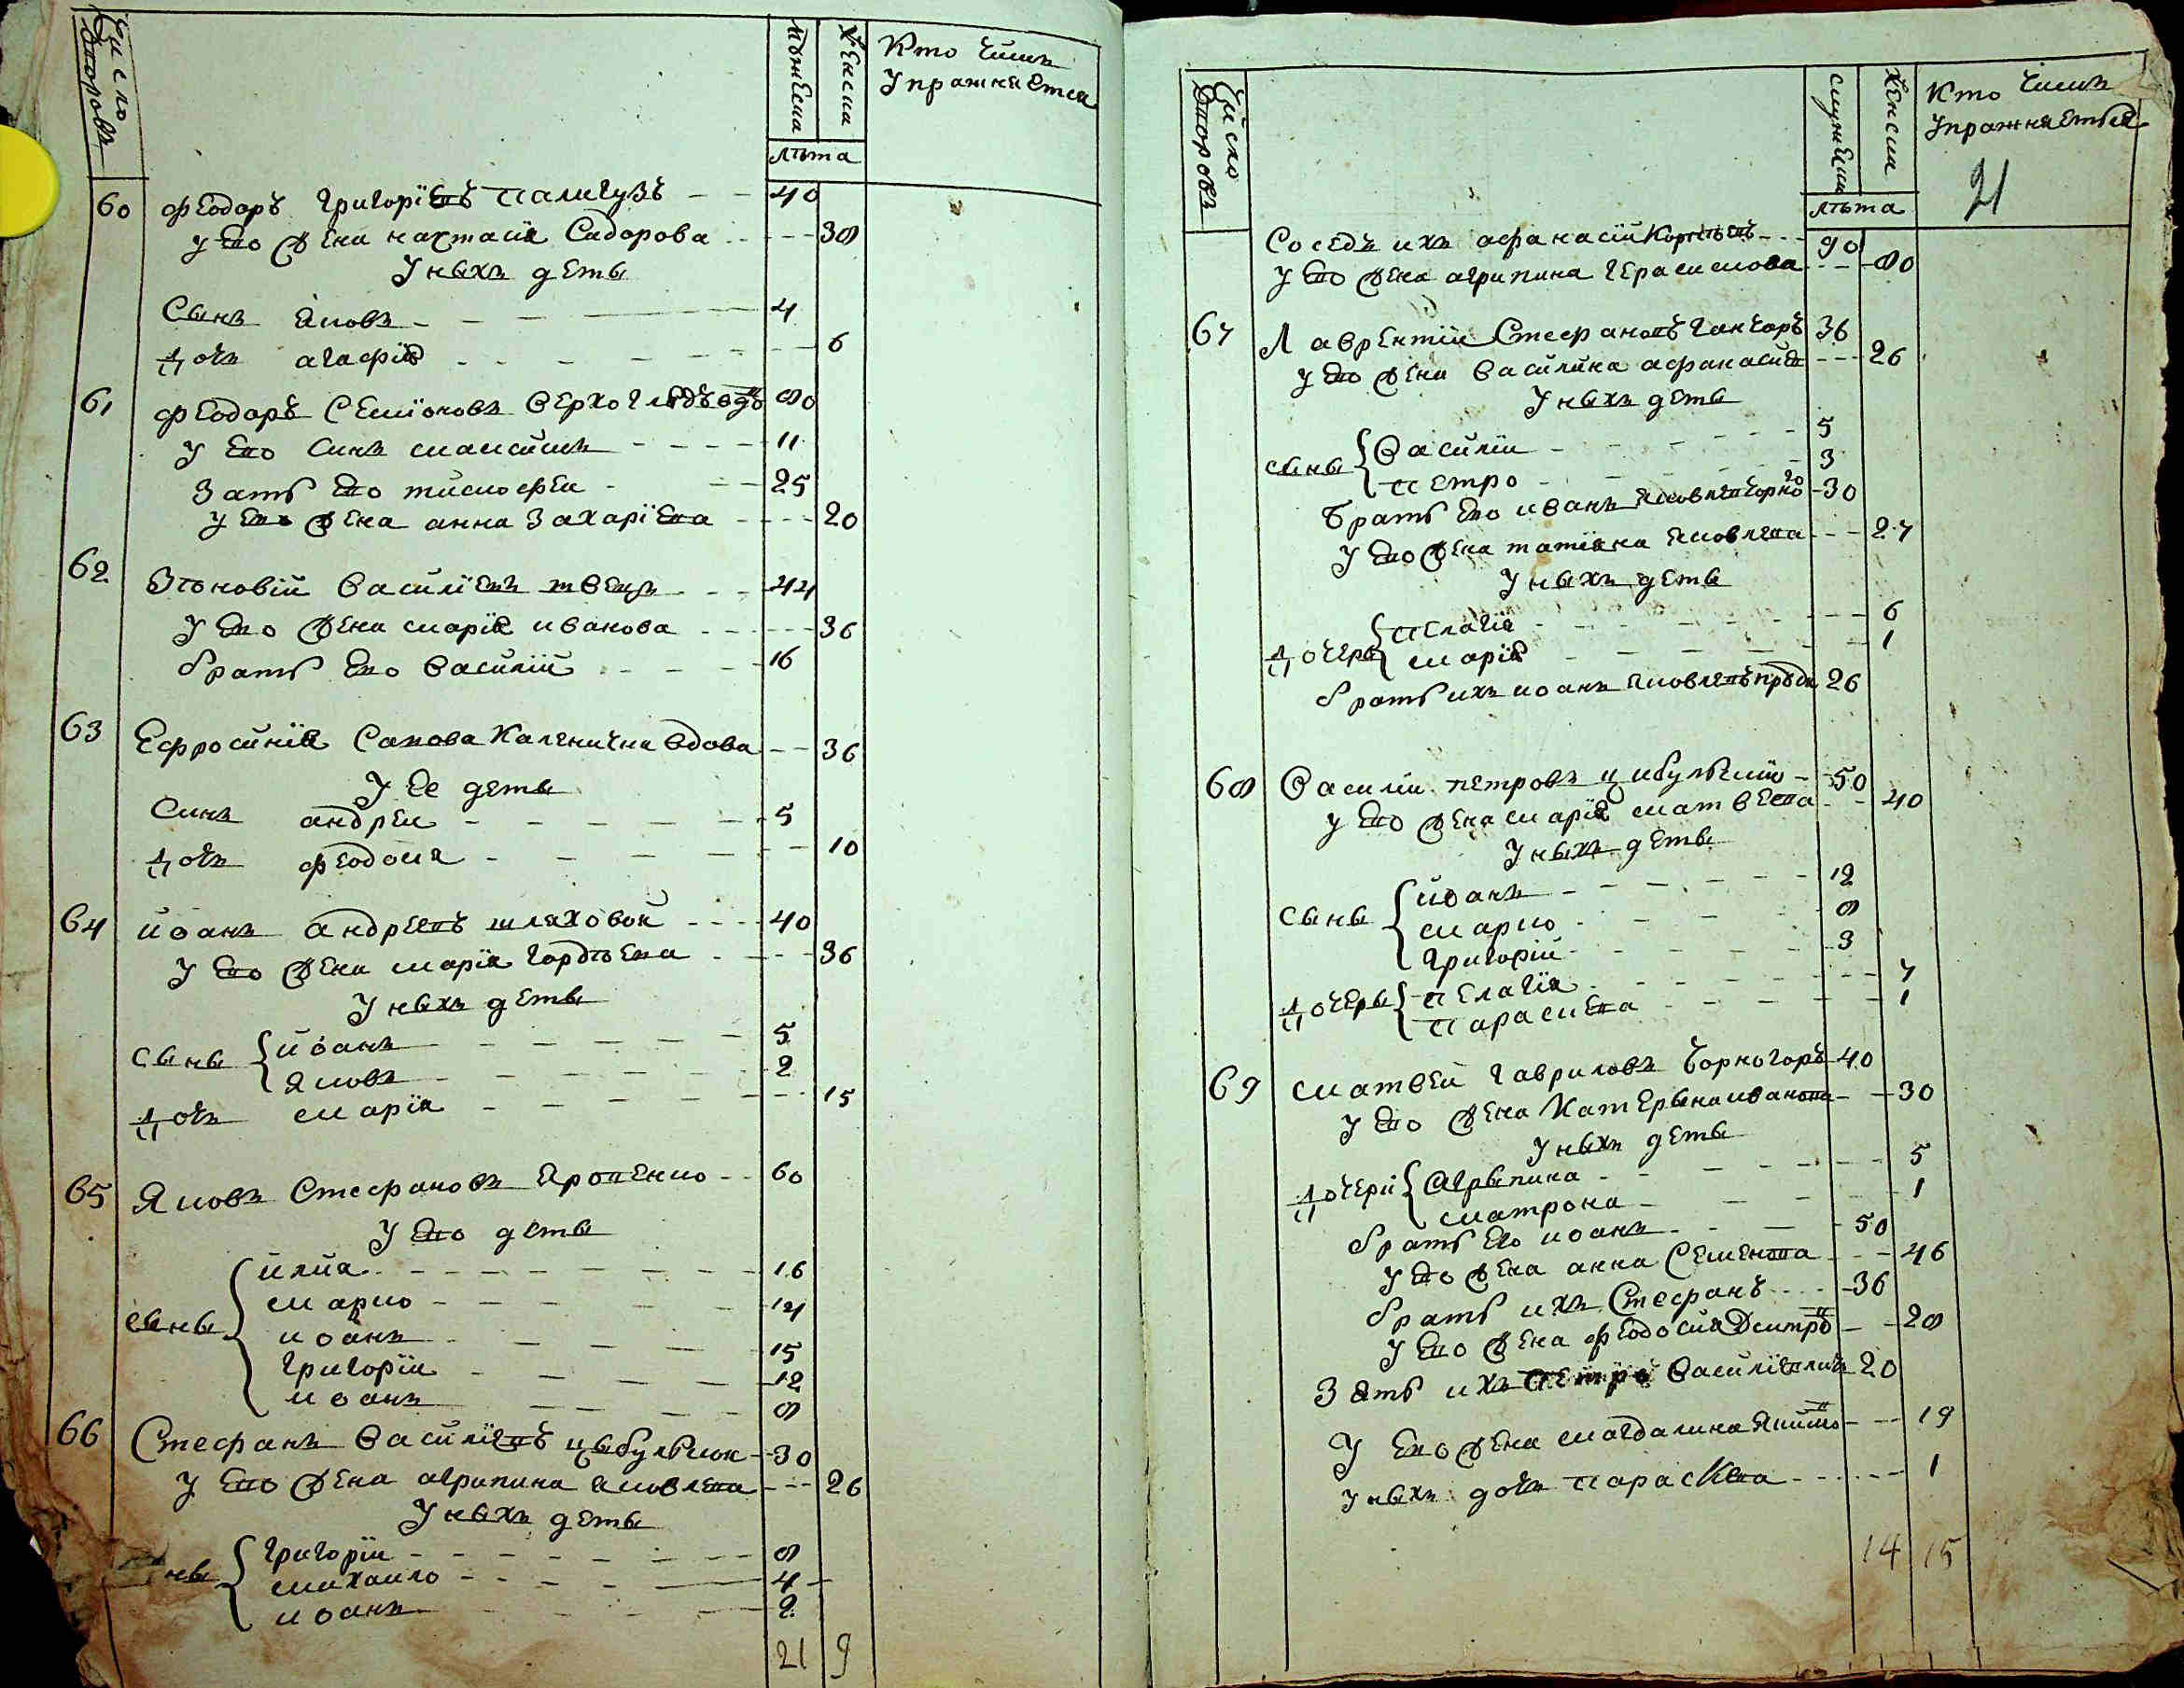 Число Дворовъ
мужеска
женска
Кто Чимъ
Упражняется
лѣта
60 Феодоръ Григоріевъ Палигузъ 40
у его жена Настасія Сидорова 38
У ныхъ деты
Сынъ Яковъ 4
Дочь Агафія 6
61 Феодоръ Семіоновъ Верхоглядъ вдвъ 80
у его Синъ Максимъ 11
Зять его Тимофей 25
у его жена Анна Захаріева 20
62 Зѣновій Василіевъ Швецъ 44
у его жена Марія Иванова 36
братъ его Василій 16
63 Ефросинія Савова Каленична вдова 36
У ее деты
Синъ Андреи 5
Дочь Феодосия 10
64 Иоанъ Андреевъ Шляховой 40
у его жена Марія Гордѣева 36
У ныхъ деты
Сыны Иоанъ 5
Яковъ 2
Дочь Марія 15
65 Яковъ Стефановъ Яропенко 60
У его деты
Сыны Илиа 16
Марко 14
Иоанъ 15
Григоріи 12
Иоанъ 8
66 Стефанъ Василіевъ Цыбульнок 30
у его жена Агрипина Яковлева 26
У ныхъ деты
ны Григоріи 8
Михаило 4
Иоанъ 2
21 9
Число Дворовъ
женска
Кто Чимъ
Упражняеться
21
лѣта
Соседъ ихъ Афанасій Корнѣевъ 90
у его жена Агрипина Герасимова 80
67 Лаврентіи Стефановъ Ганчаръ 36
у его жена Василина Афанасиев 26
У ныхъ деты
Сыны Василіи 5
Петро 3
Братъ его Иванъ Яковлев Чорно 30
у его жена Татіяна Яковлева 27
У ныхъ деты
Дочеры Пелагія 6
Марія 1
братъ ихъ Иоанъ Яковлевъ 26
68 Василіи Петровъ Цибульскій 50
у его жена Марія Матвеева 40
У ныхъ деты
Сыны Иоанъ 12
Марко 8
Григоріи 3
Дочеры Пелагія 7
Параскева 1
69 Матвей Гавриловъ Чорногоръ 40
у его жена Катерына Иванова 30
У ныхъ деты
Дочери Агрыпина 5
Матрона 1
братъ его Иоанъ 50
у его жена Анна Семенова 46
братъ ихъ Стефанъ 36
у его жена Феодосия Дмитров 28
Зять ихъ Петро Василіев 20
у его жена Магдалина Якимо 19
у ныхъ дочь Параскева 1
14 15